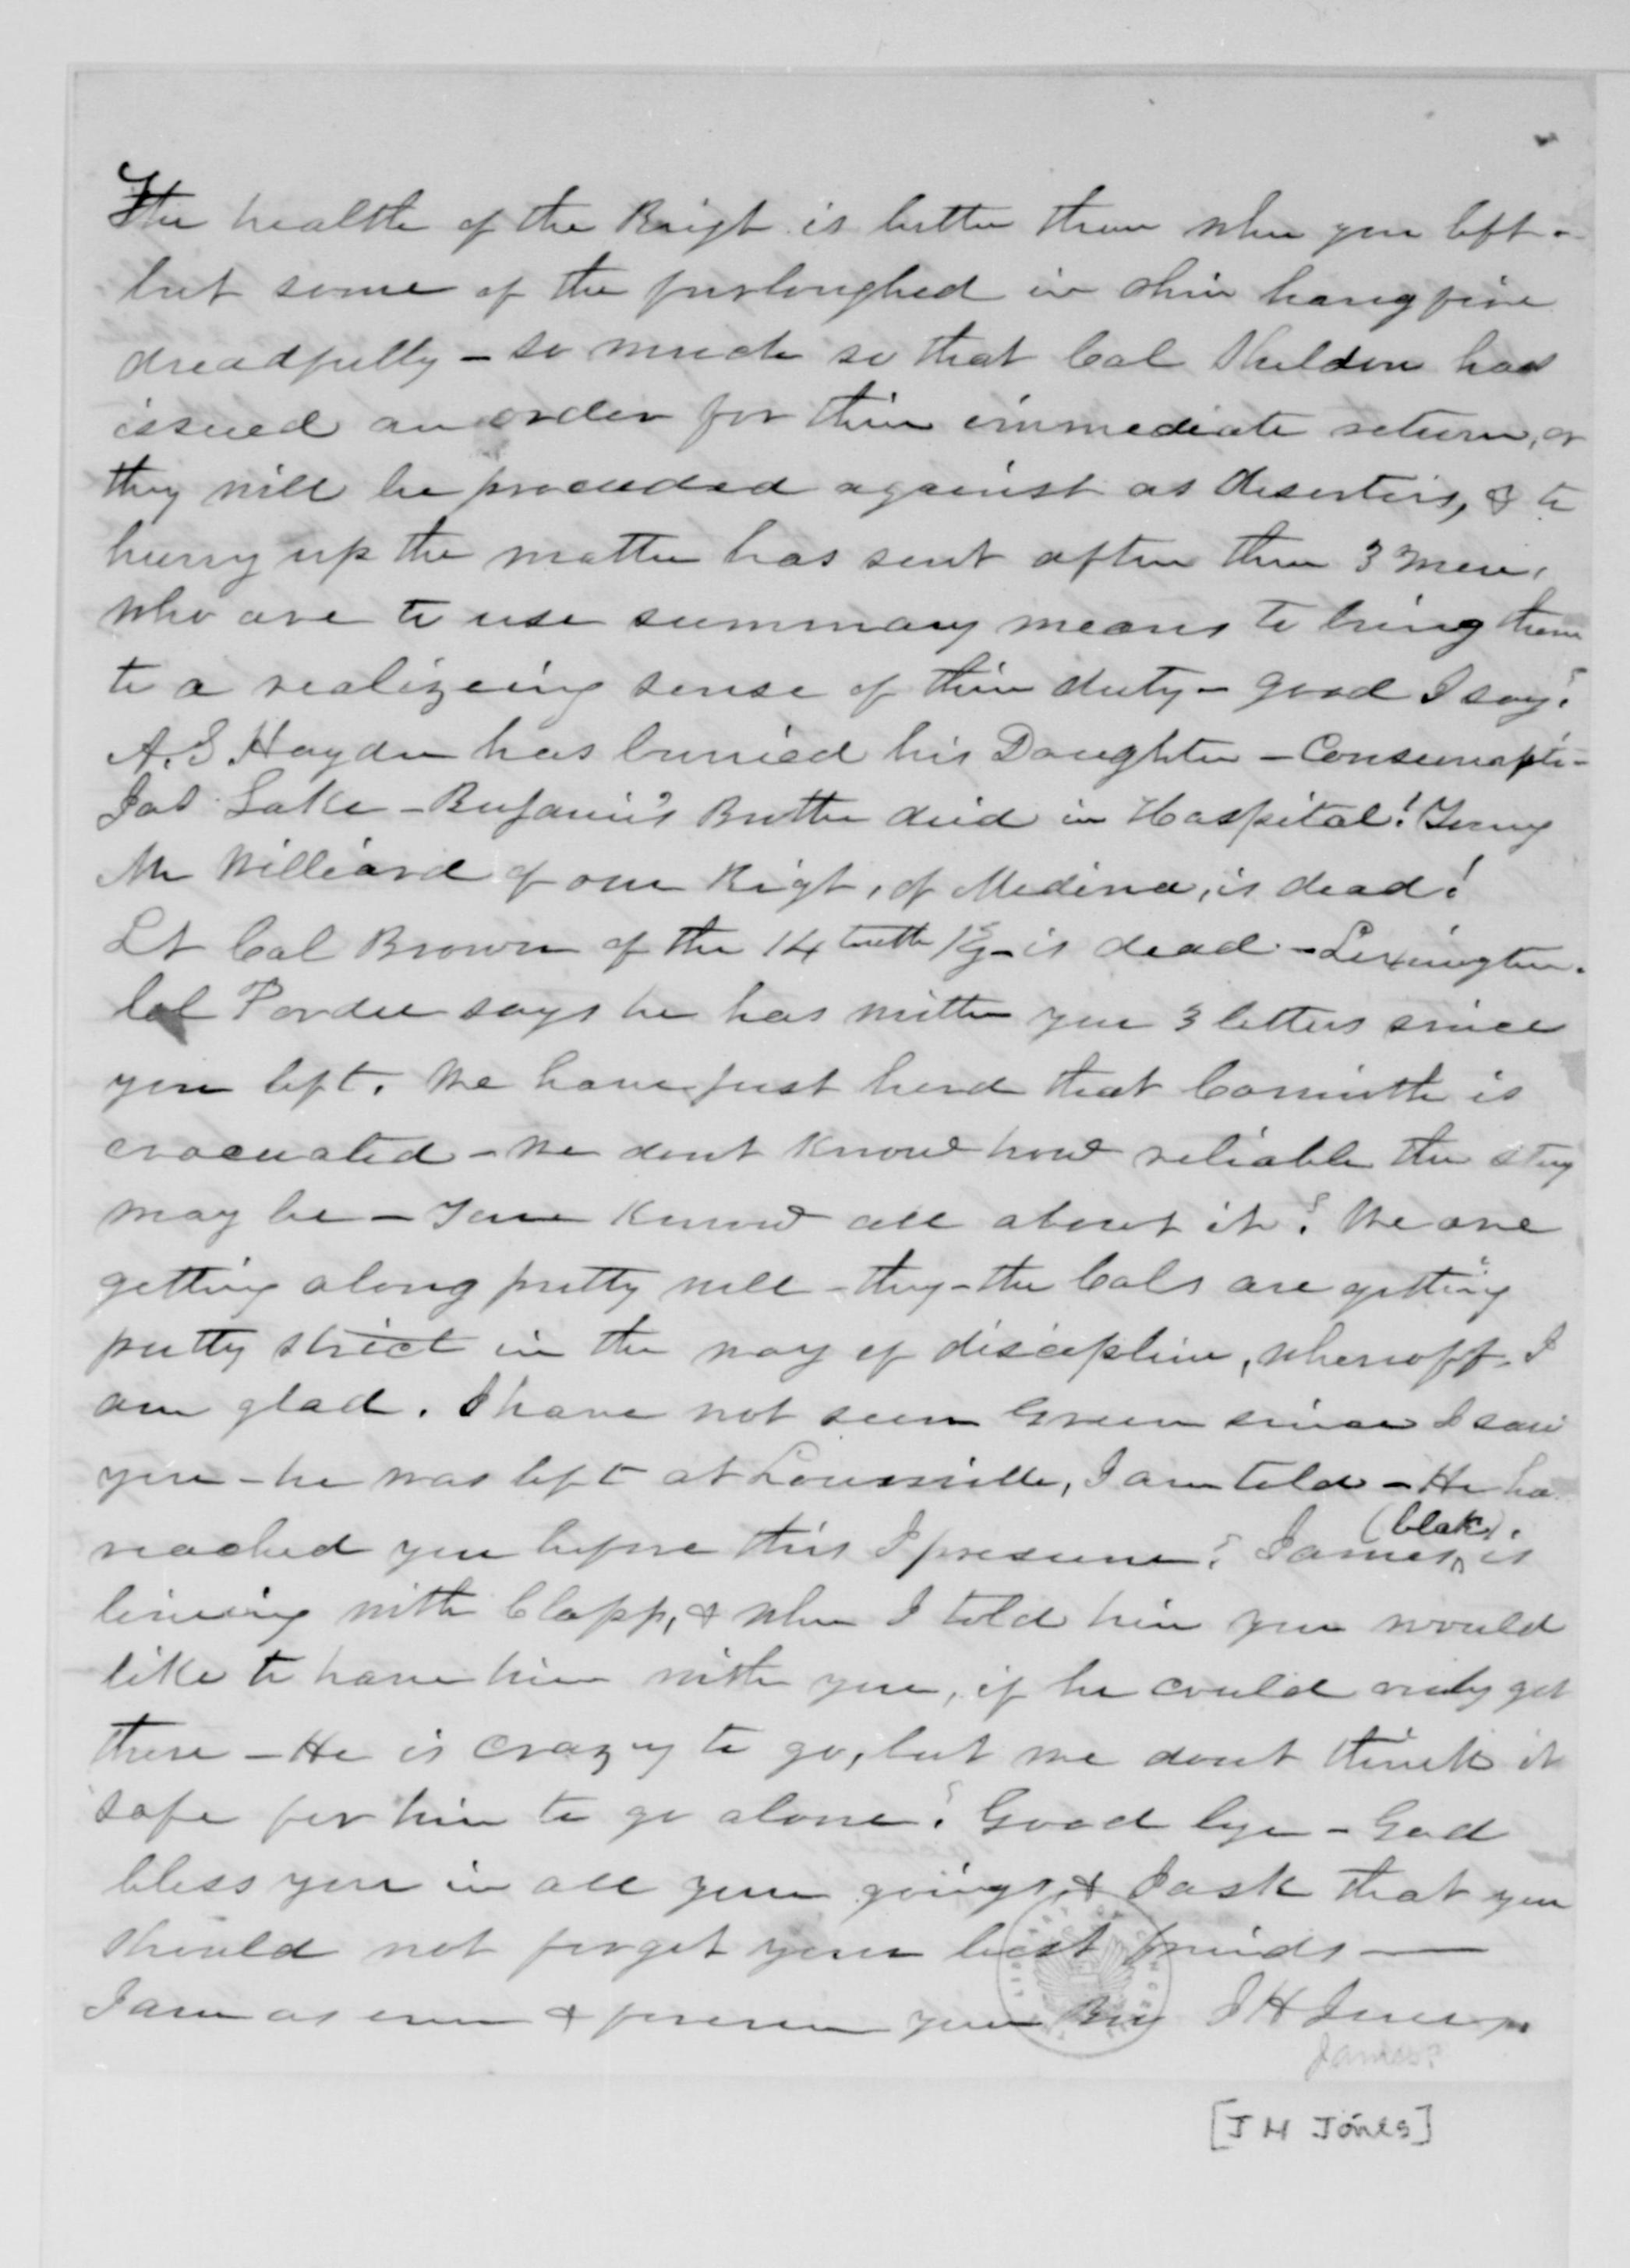 The health of the Reigt is better than when you left -
but some of the furloughed in Ohio hang fire
dreadfully - so much so that Col Sheldon has
issued an order for their immediate return, or
they will be proceeded against as deserters, & to
hurry up the matter has sent after them 3 men,
who are to use summary means to bring them
to a realizeing sense of their duty - good I say!
A. S Hayden has buried his Daughter - Consumpti-
Jas Lake - Brother died in Hospital! Young
Mr Williard of our Reigt, of Medina, is dead!
Lt Col Brown of the 14 Reg - is dead - Lexington.
Col Pardee says he has written you 3 letters since
you left. We have just herd that Corinth is
evacuated - we dont know how reliable the story
may be - You know all about it! We are
getting along pretty well - they - the Cols are getting
pretty strict in the way of discipline, whereoff I
am glad. I have not seen Green since I saw
you - he was left at Louisville, I am told - He ha
reached you before this I presume! James (blak) is
living with Clapp, & when I told him you would
like to have him with you, if he could only get
there - He is crazy to go, but we dont think it
safe for him to go alone! Good bye - God
bless you in all your goings, & I ask that you
should not forget your best friends —
I am as ever & forever your Bro J H Jones
James?
[J H Jones]